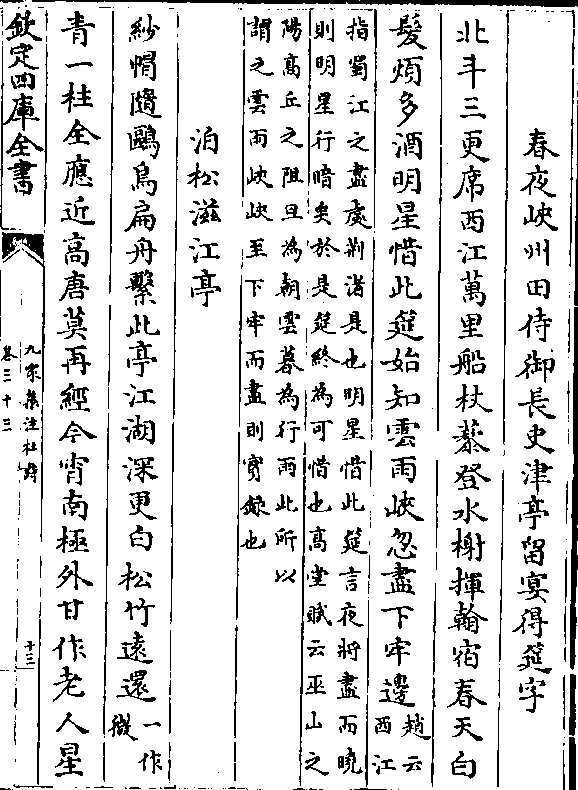 春夜峽州田侍御長史津亭留宴得筵字
北斗三更席西江萬里船杖藜登水榭揮翰宿春天白
髮煩多酒明星惜此筵始知雲雨峽忽盡下牢邊趙云西江
指蜀江之盡處荆渚是也明星惜此筵言夜將盡而曉
則明星行暗矣於是筵終為可惜也高堂賦云巫山之
陽高丘之阻旦為朝雲暮為行雨此所以
謂之雲雨峽峽至下牢而盡則實錄也
泊松滋江亭
紗㡌隨鷗鳥扁舟繫此亭江湖深更白松竹遠還一作微
青一柱全應近高唐莫再經今宵南極外甘作老人星
欽定四庫全書
九家集注杜詩
卷三十三
十三